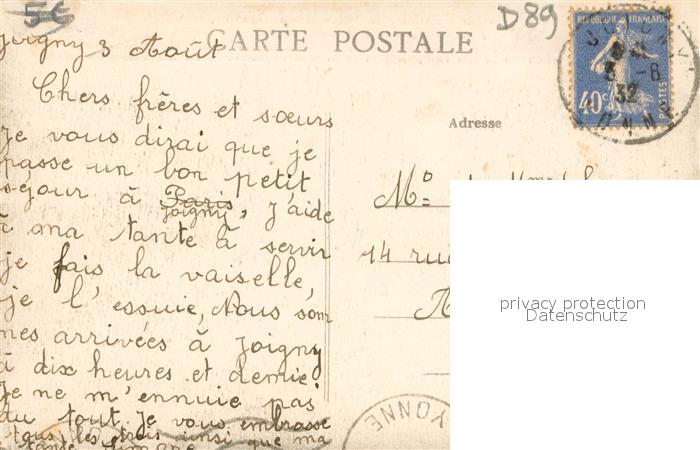 56
D89
CARTE POSTALE
RÉPUBLIQUE FRANÇAISE
40c
POSTES
3 -8
32
Adresse
Joigny 3 Août
Chers frères et sœurs
Je vous dirai que je
passe un bon petit
séjour à Paris
Joigny, j'aide
à ma tante à servir
je fais la vaiselle,
je l'essuie, Nous som
mes arrivées à Joigny
à dix heures et demie.
Je ne m'ennuie pas
du tout. Je vous embrasse
tous les trois ainsi que ma
tante
Mo
14 rue
YONNE
privacy protection
Datenschutz